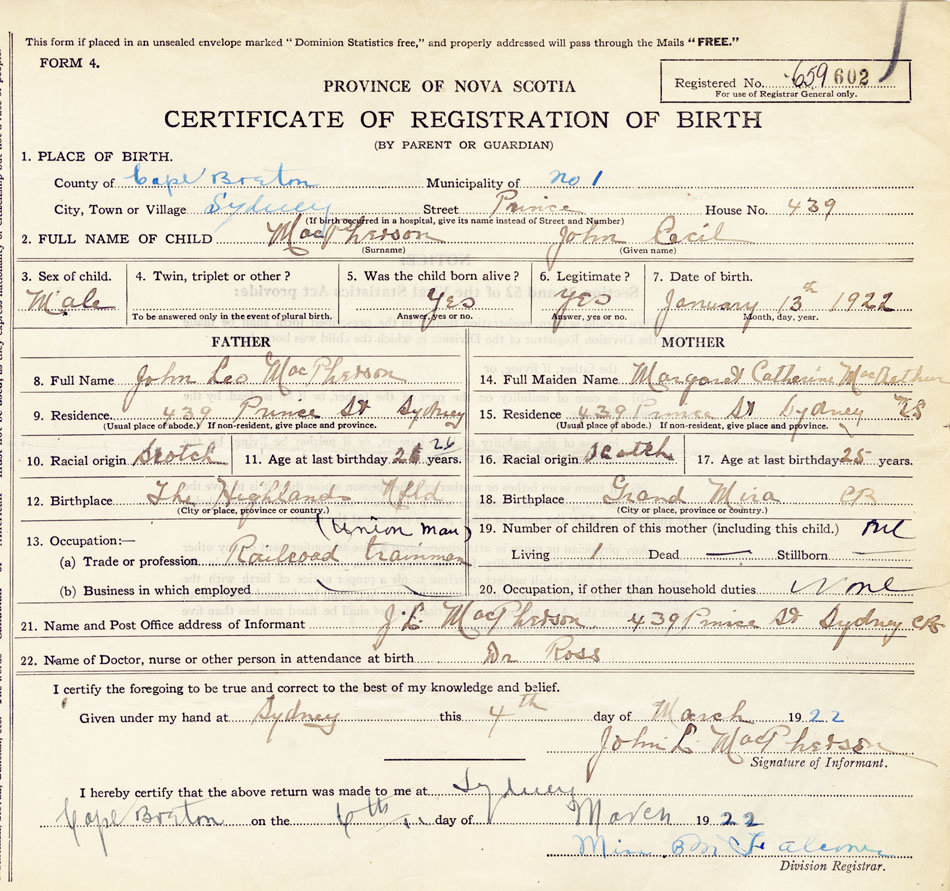 This form if placed in an unsealed envelope marked "Dominion Statistics free," and properly addressed will pass through the Mails "FREE."
FORM 4.
PROVINCE OF NOVA SCOTIA
Registered No. 659 602
For use of Registrar General only.
CERTIFICATE OF REGISTRATION OF BIRTH
(BY PARENT OR GUARDIAN)
1. PLACE OF BIRTH.
County of Cape Breton Municipality of No 1
City, Town or Village Sydney Street Prince House No. 439
(If birth occurred in a hospital, give its name instead of Street and Number)
2. FULL NAME OF CHILD MacPherson John Cecil
(Surname) (Given name)
3. Sex of child. 4. Twin, triplet or other? 5. Was the child born alive? 6. Legitimate? 7. Date of birth.
Male Yes Yes January 13th 1922
To be answered only in the event of plural birth. Answer, yes or no. Answer, yes or no. Month, day, year.
FATHER MOTHER
8. Full Name John Leo MacPherson 14. Full Maiden Name Margaret Catherine MacArthur
9. Residence. 439 Prince St Sydney 15. Residence 439 Prince St Sydney NS
(Usual place of abode.) If non-resident, give place and province. (Usual place of abode.) If non-resident, give place and province.
10. Racial origin Scotch 11. Age at last birthday 26 26 years. 16. Racial origin Scotch 17. Age at last birthday 25 years.
12. Birthplace The Highlands Nfld 18. Birthplace Grand Mira CB
(City or place, province or country.) (City or place, province or country.)
13. Occupation:— (Union man) 19. Number of children of this mother (including this child.) one
(a) Trade or profession Railroad trainman Living 1 Dead — Stillborn —
(b) Business in which employed 20. Occupation, if other than household duties None
21. Name and Post Office address of Informant J. L. MacPherson 439 Prince St Sydney CB
22. Name of Doctor, nurse or other person in attendance at birth Dr Ross
I certify the foregoing to be true and correct to the best of my knowledge and belief.
Given under my hand at Sydney this 4th day of March 1922
John L. MacPherson
Signature of Informant.
I hereby certify that the above return was made to me at Sydney
Cape Breton on the 6th day of March 1922
Miss B M Falconer
Division Registrar.